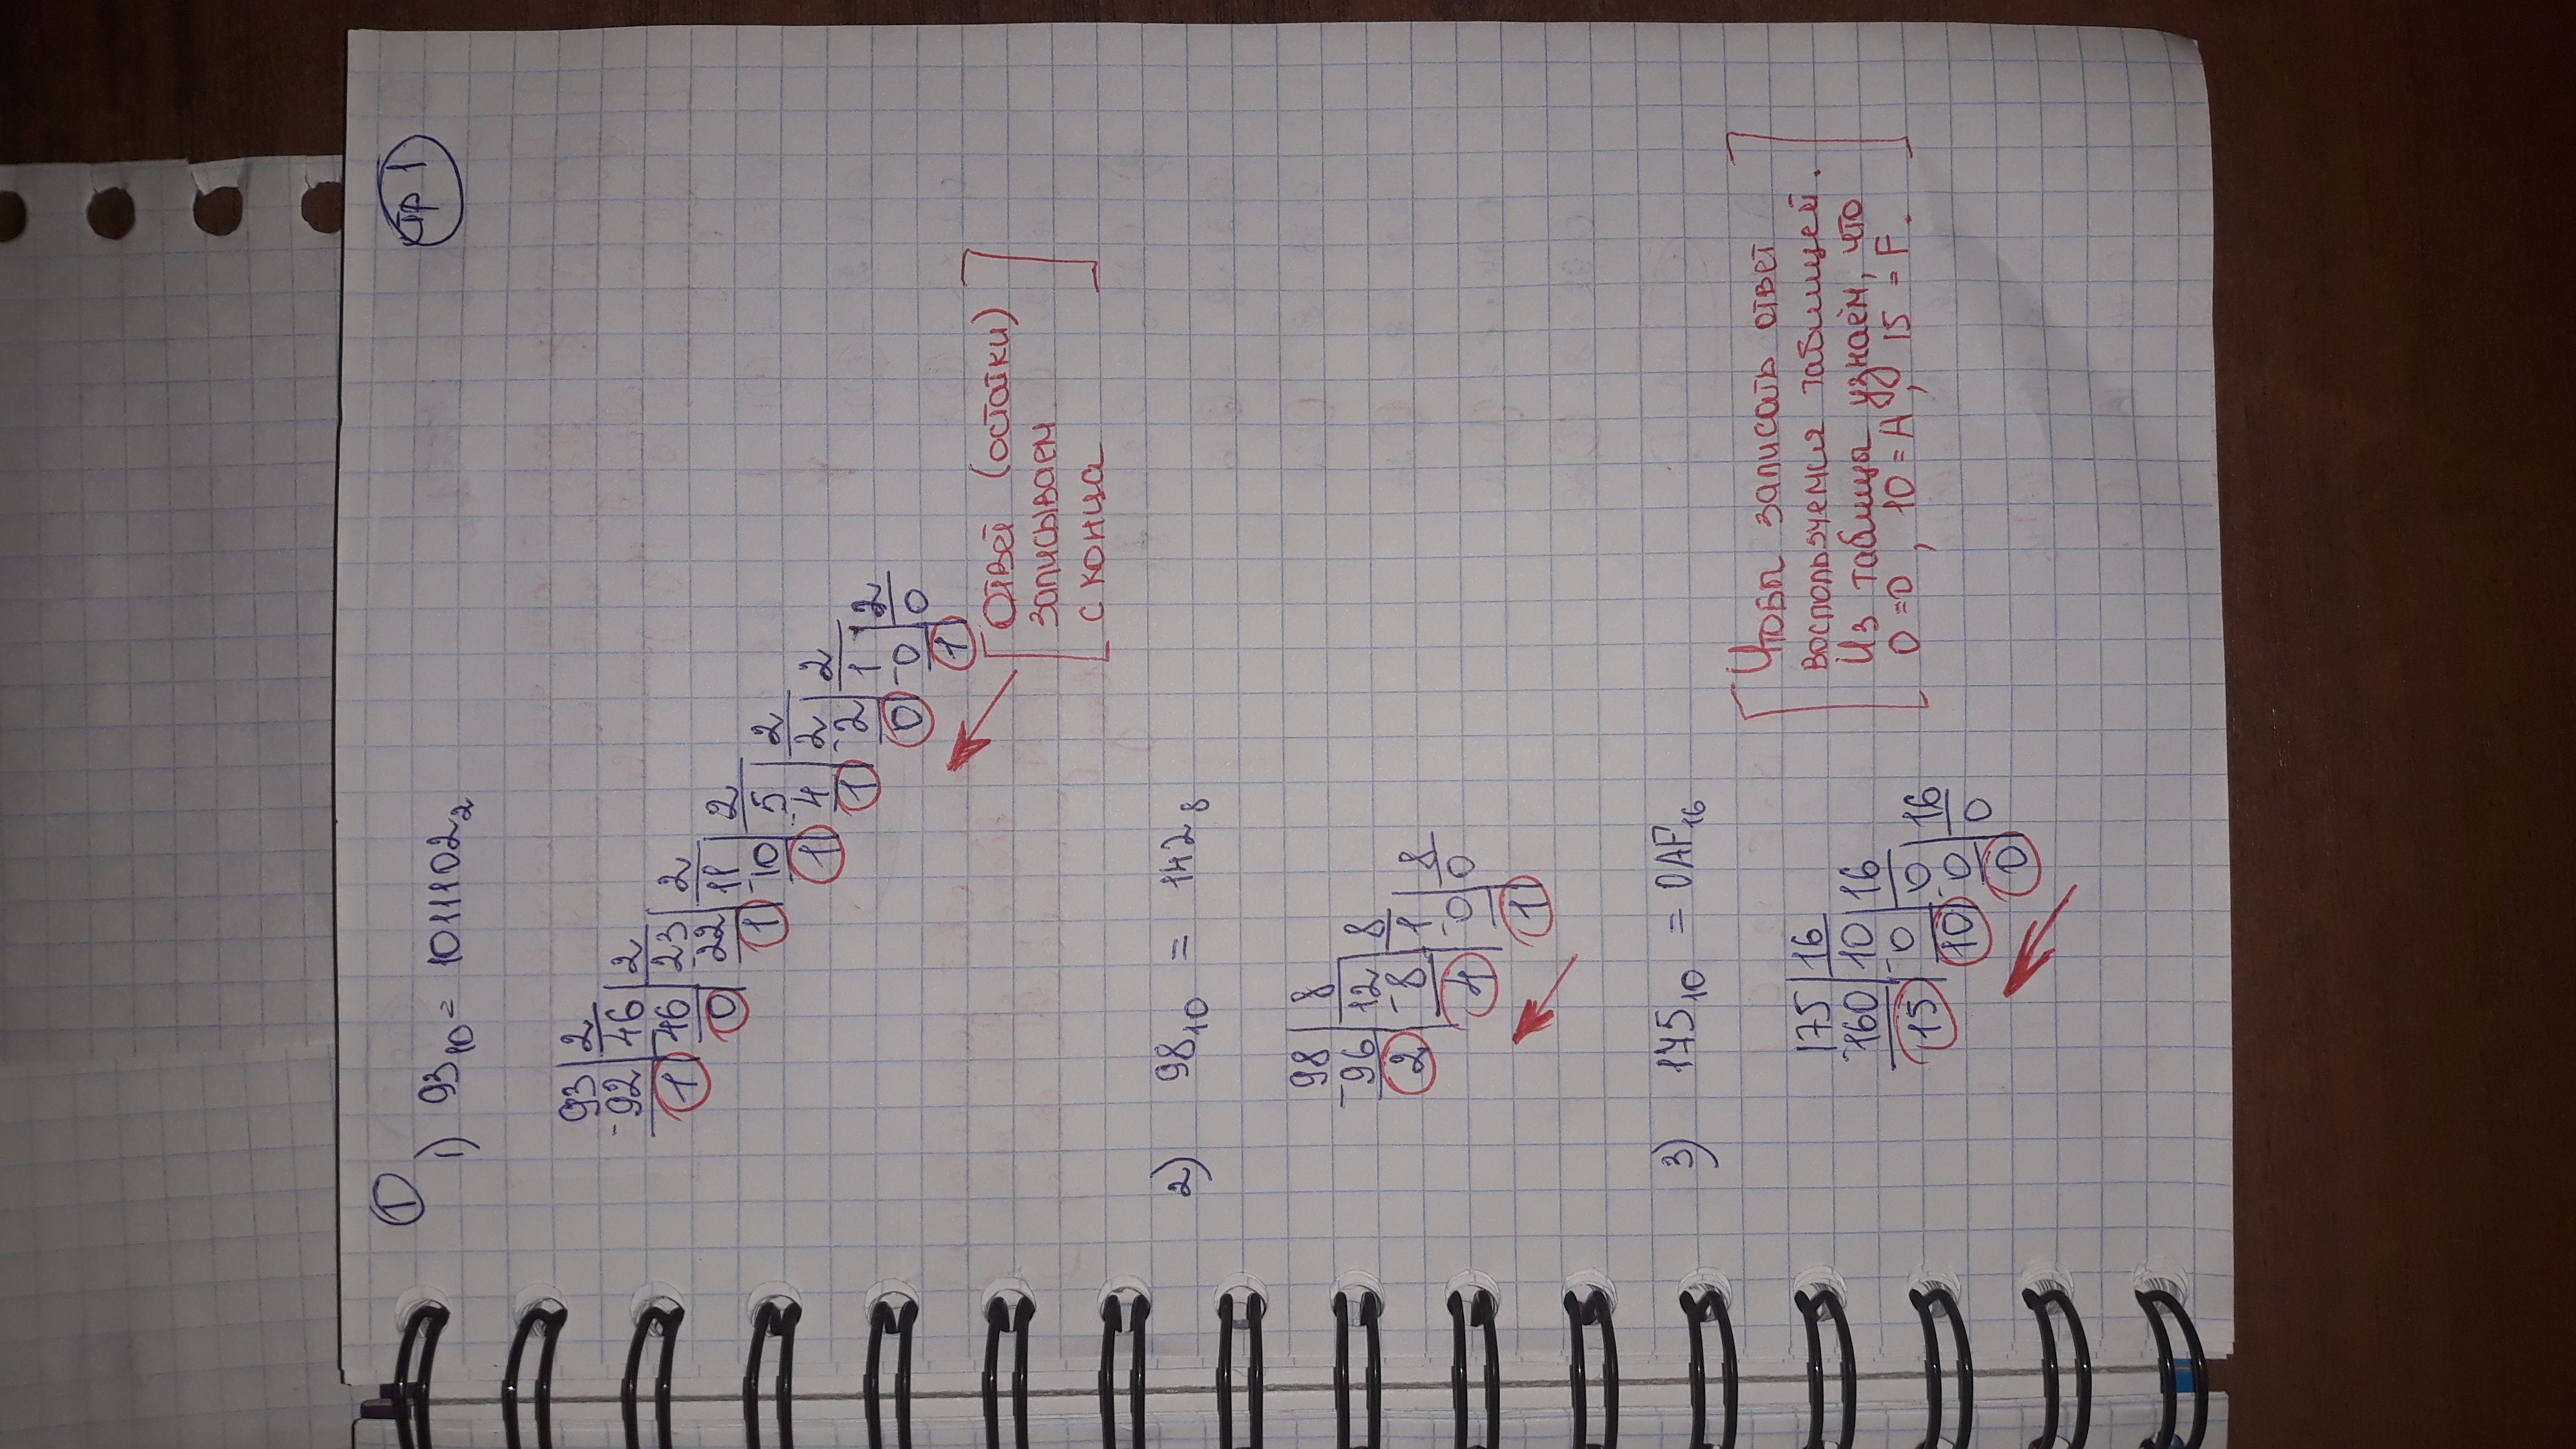 стр 1
1
1) 93₁₀ = 1011102₂
93 2
-92 46 2
1 46 23 2
0 -22 11 2
1 -10 5 2
1 -4 2 2
1 -2 1 2
0 -0 0
1
Ответ (остатки)
записываем
с конца
2) 98₁₀ = 142₈
98 8
-96 12 8
2 -8 1 8
4 -0 0
1
3) 145₁₀ = 0AF₁₆
175 16
-160 10 16
15 -0 0 16
10 -0 0
0
Чтобы записать ответ
воспользуемся таблицей.
Из таблицы узнаём, что
0=0, 10=A, 15=F.